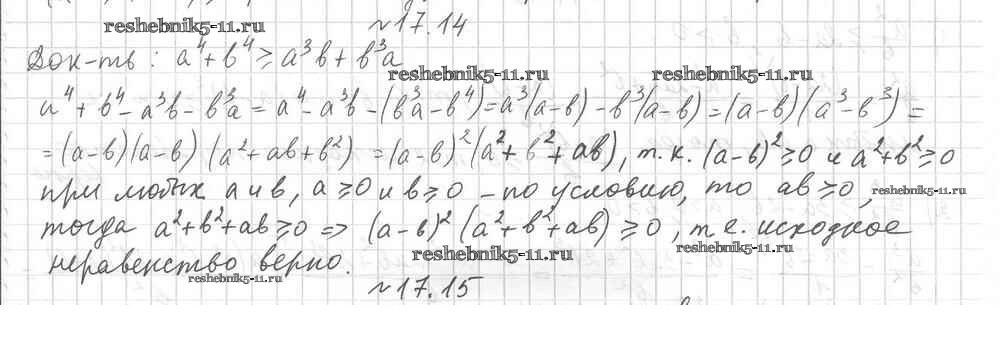 reshebnik5-11.ru
№17.14
Док-ть: a⁴+b⁴ ≥ a³b + b³a
reshebnik5-11.ru reshebnik5-11.ru
a⁴ + b⁴ - a³b - b³a = a⁴ - a³b - (b³a - b⁴) = a³(a-b) - b³(a-b) = (a-b)(a³-b³) =
= (a-b)(a-b)(a²+ab+b²) = (a-b)²(a²+b²+ab), т.к. (a-b)² ≥ 0 и a²+b² ≥ 0
при любых a и b, a ≥ 0 и b ≥ 0 – по условию, то ab ≥ 0,
reshebnik5-11.ru
тогда a²+b²+ab ≥ 0 => (a-b)² (a²+b²+ab) ≥ 0, т.е. исходное
reshebnik5-11.ru reshebnik5-11.ru
неравенство верно.
reshebnik5-11.ru
№17.15